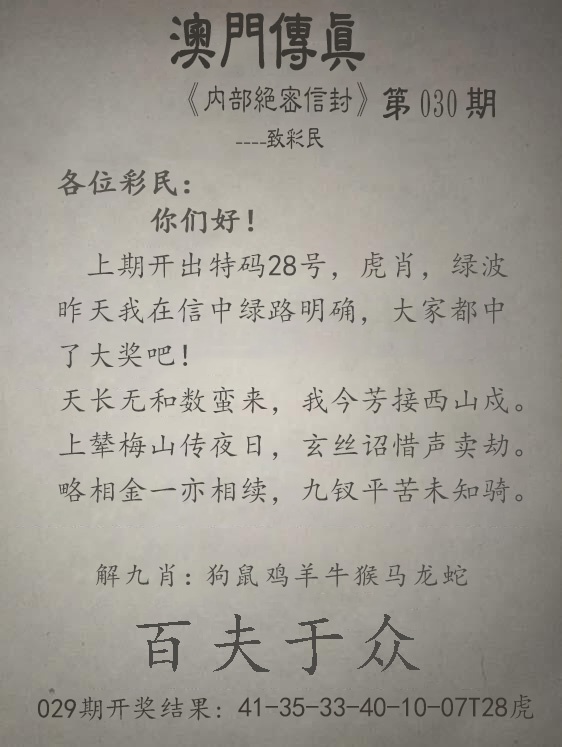 澳門傳眞
《内部絕密信封》第030期
----致彩民
各位彩民：
你们好！
上期开出特码28号，虎肖，绿波
昨天我在信中绿路明确，大家都中
了大奖吧！
天长无和数蛮来，我今芳接西山戍。
上辇梅山传夜日，玄丝诏惜声卖劫。
略相金一亦相续，九钗平苦未知骑。
解九肖：狗鼠鸡羊牛猴马龙蛇
百夫于众
029期开奖结果：41-35-33-40-10-07T28虎